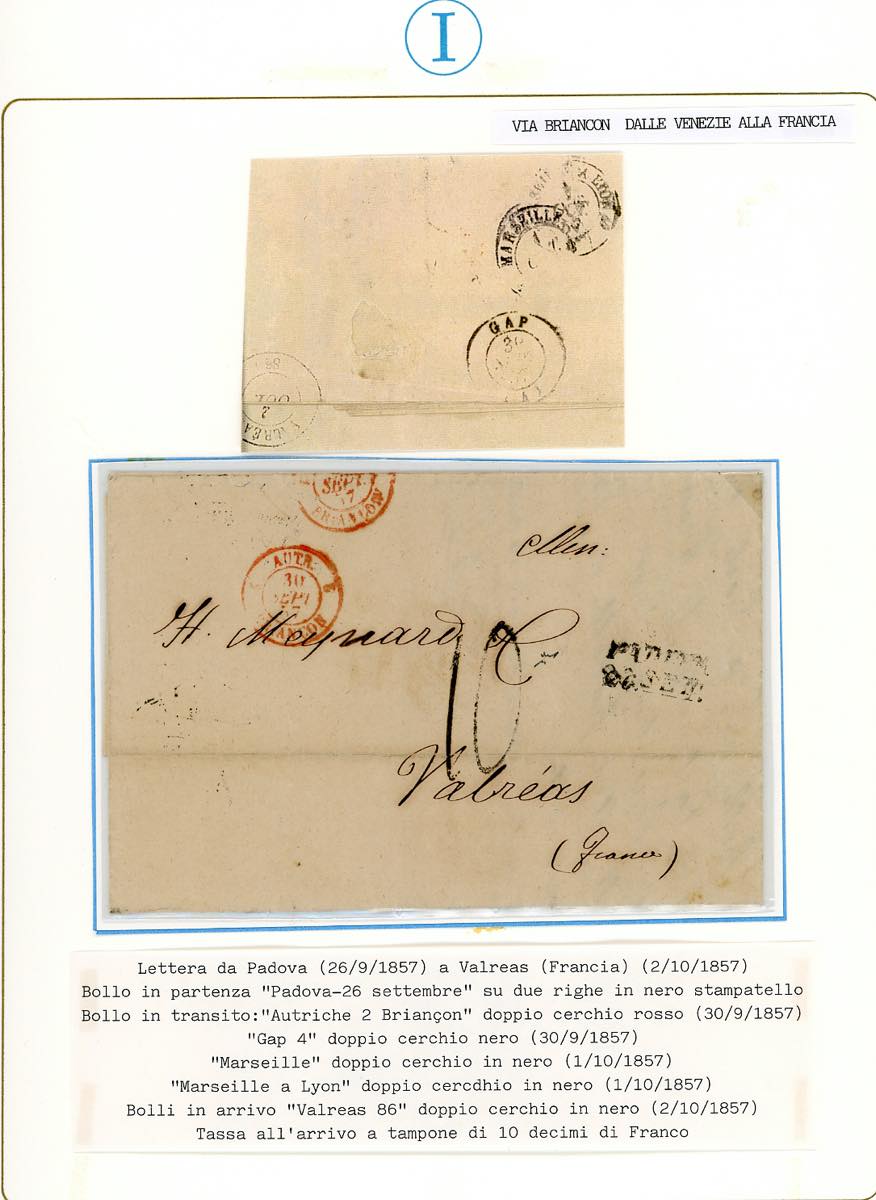 I
VIA BRIANCON DALLE VENEZIE ALLA FRANCIA
MARSEILLE
GAP
30
2
SEPT
57
BRIANÇON
AUTR. 2
30
SEPT
BRIANÇON
H. Meynard
10
26 SET.
Valréas
(France)
Lettera da Padova (26/9/1857) a Valreas (Francia) (2/10/1857)
Bollo in partenza "Padova-26 settembre" su due righe in nero stampatello
Bollo in transito:"Autriche 2 Briançon" doppio cerchio rosso (30/9/1857)
"Gap 4" doppio cerchio nero (30/9/1857)
"Marseille" doppio cerchio in nero (1/10/1857)
"Marseille a Lyon" doppio cercdhio in nero (1/10/1857)
Bolli in arrivo "Valreas 86" doppio cerchio in nero (2/10/1857)
Tassa all'arrivo a tampone di 10 decimi di Franco